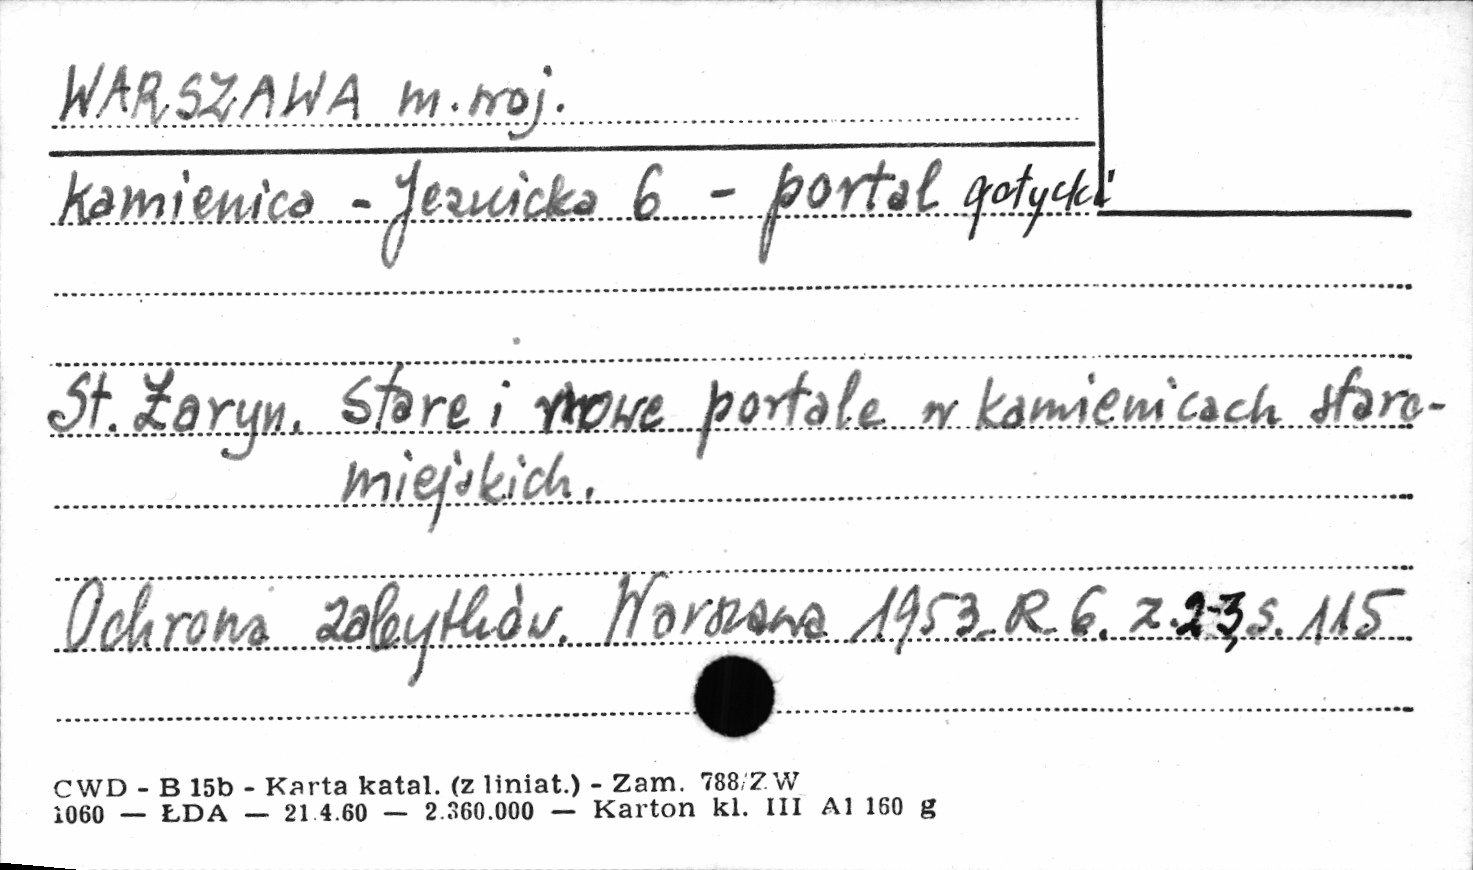 WARSZAWA m. woj.
Kamienica - Jezuicka 6 - portal gotycki
St. Żaryn. Stare i nowe portale w kamienicach staro-
miejskich.
Ochrona zabytków. Warszawa 1953. R. 6. z. 2-3, s. 115
CWD - B 15b - Karta katal. (z liniat.) - Zam. 788/ZW
1060 — ŁDA — 21.4.60 — 2.360.000 — Karton kl. III A1 160 g